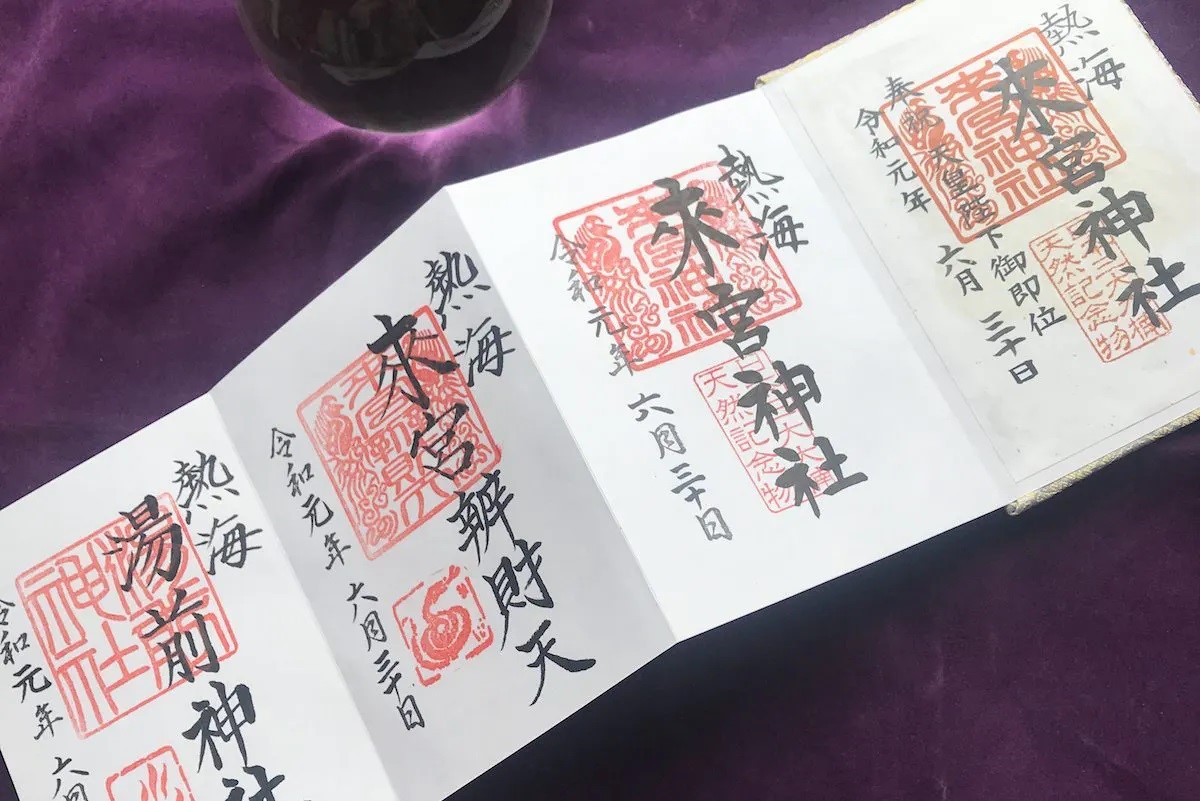 熱海
來宮神社
來宮神社
天然記念物
奉祝 天皇陛下御即位
令和元年 六月 三十日
熱海
來宮神社
來宮神社
天然記念物
令和元年 六月三十日
熱海
來宮辨財天
令和元年 六月三十日
熱海
湯前神社
湯前神社
令和元年 六月